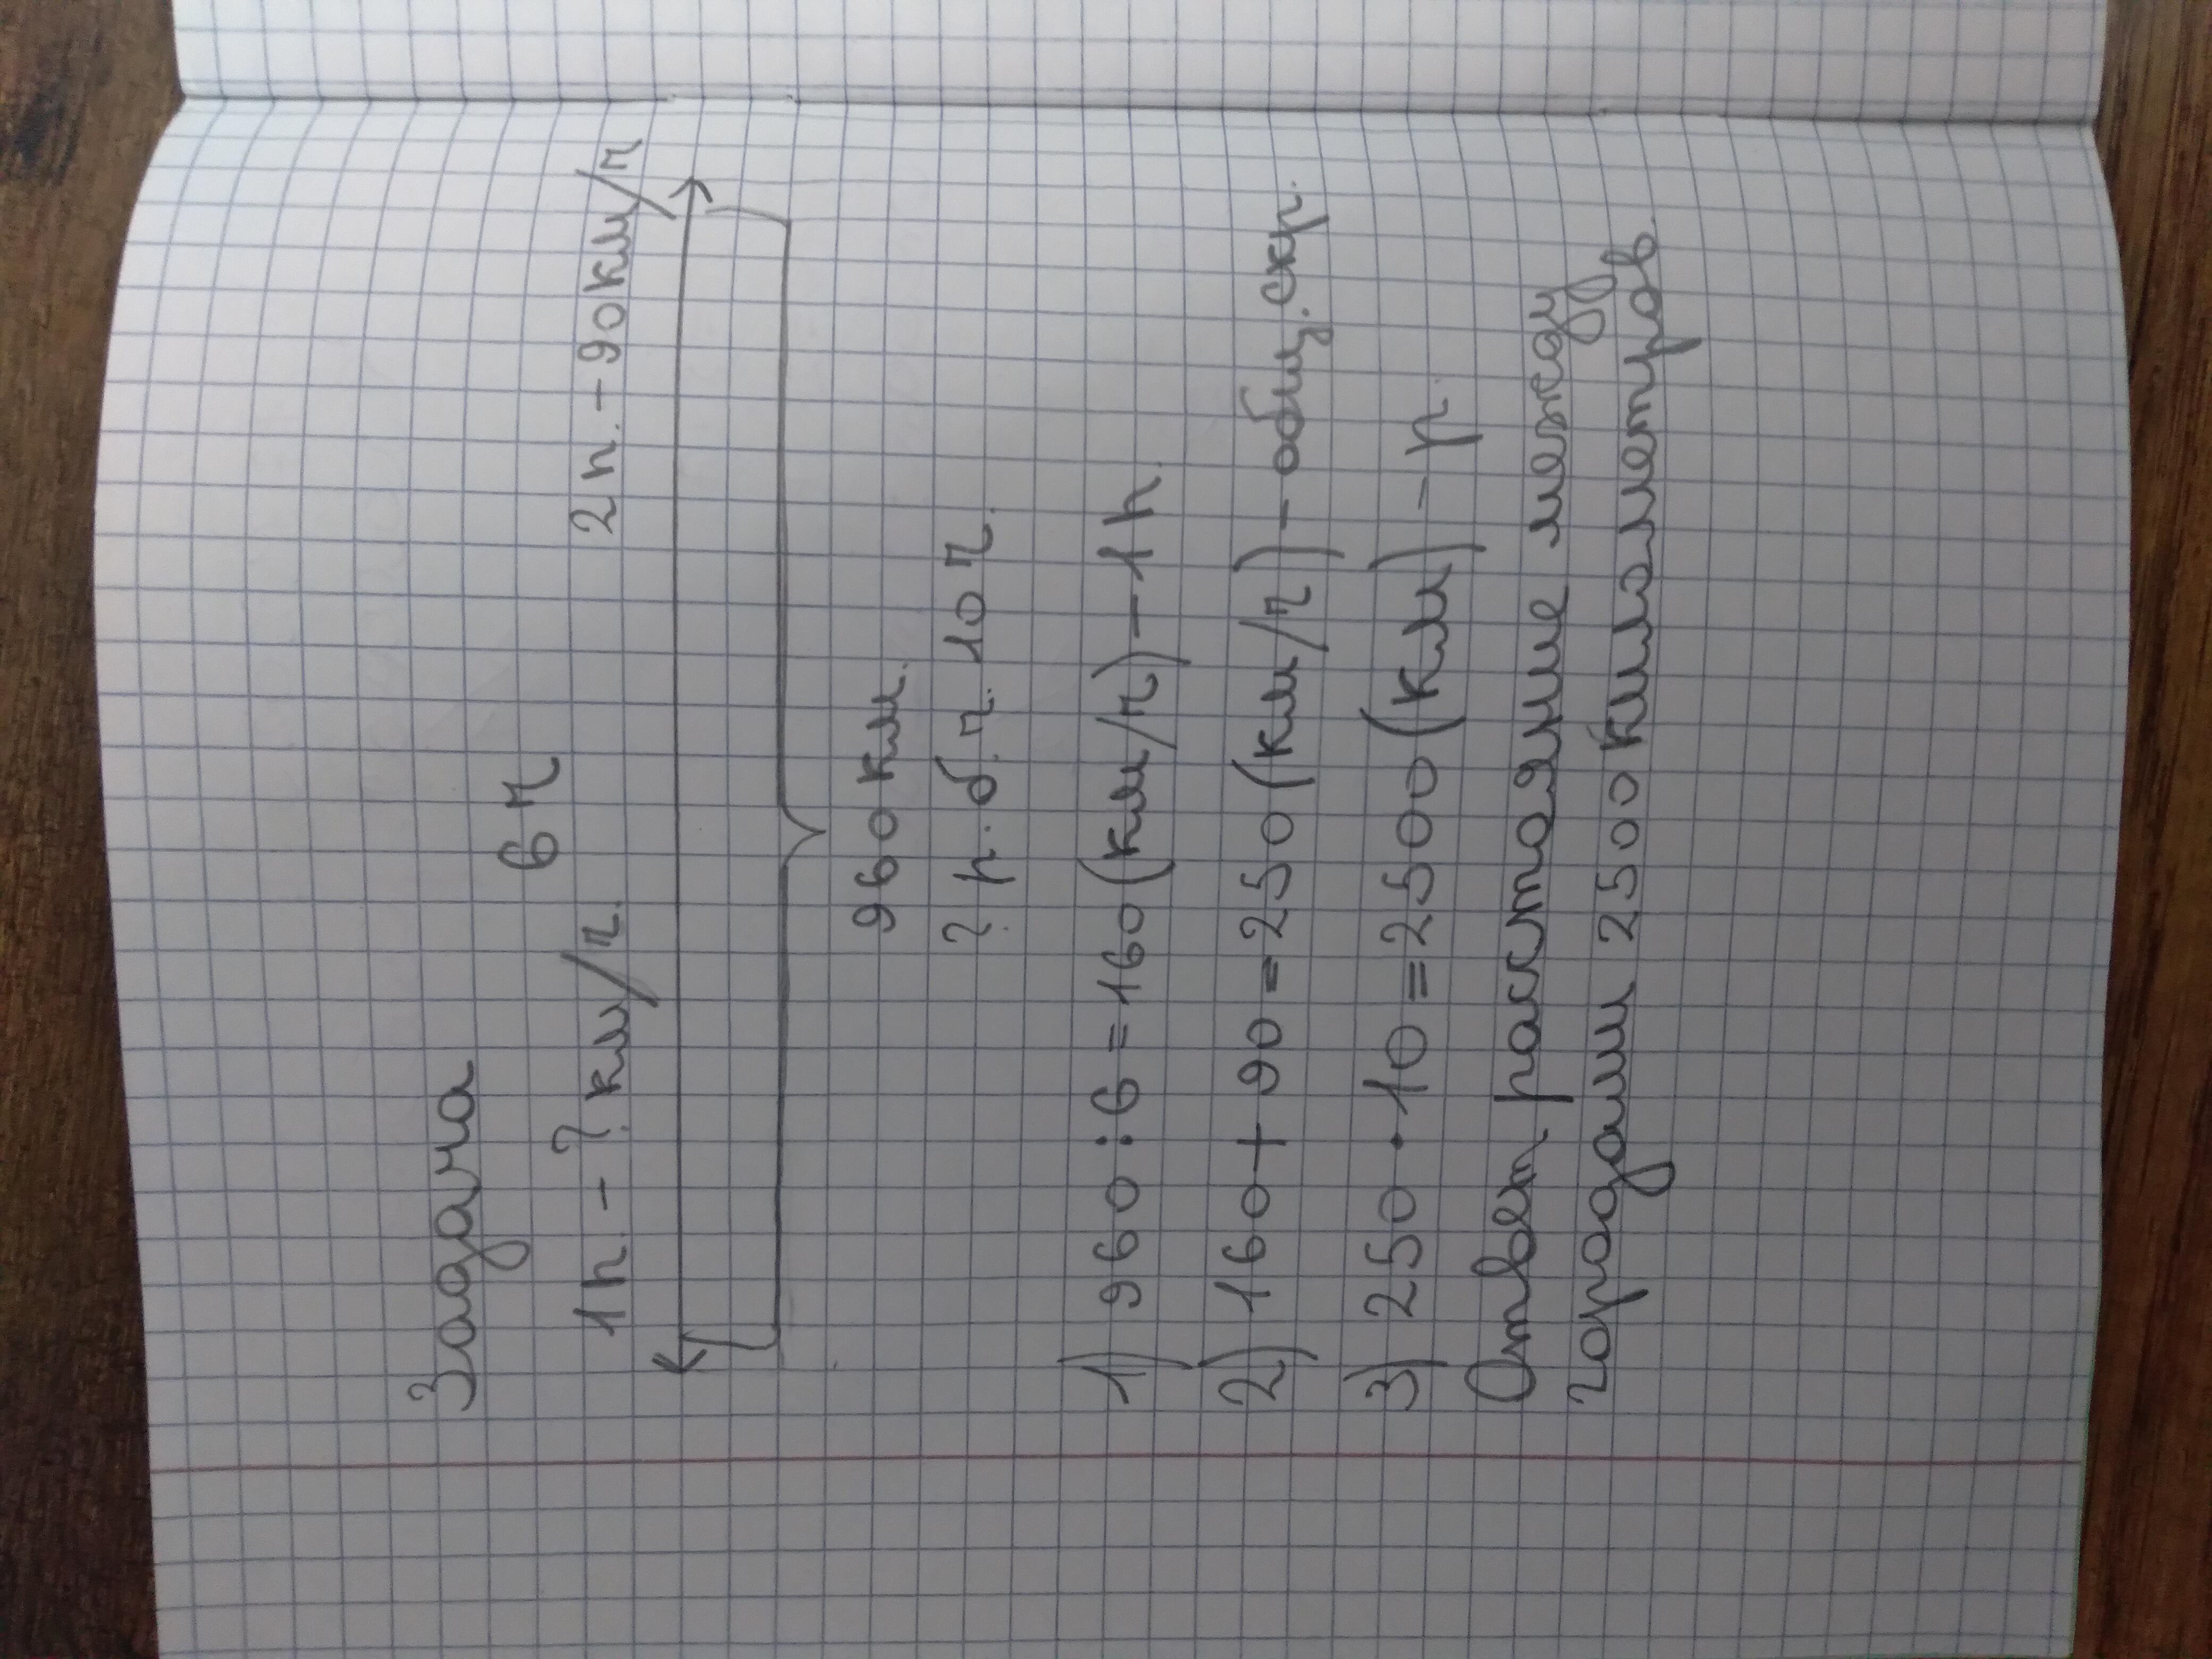 Задача
6 ч
1 п. - ? км/ч. 2 п. - 90 км/ч
960 км.
? р. б. ч. 10 ч.
1) 960 : 6 = 160 (км/ч) - 1 п.
2) 160 + 90 = 250 (км/ч) - общ. скр.
3) 250 · 10 = 2500 (км) - р.
Ответ расстаяние между
городами 2500 километров